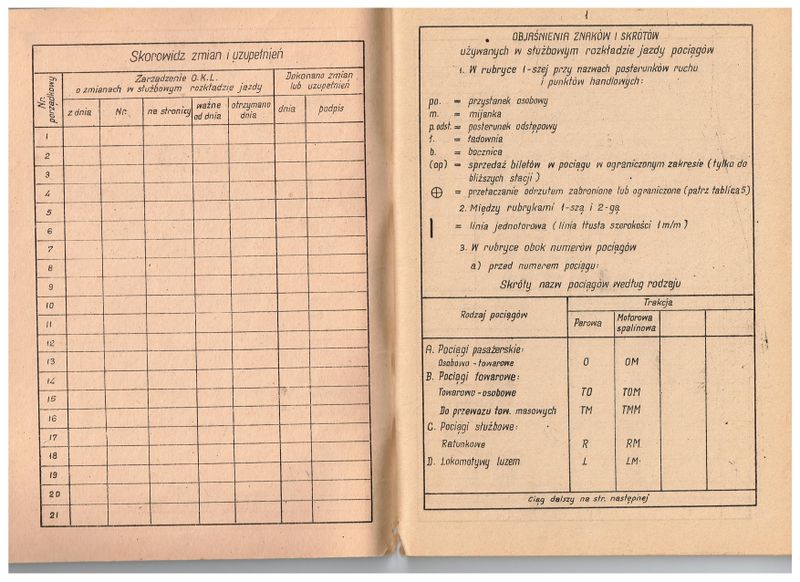 Skorowidz zmian i uzupełnień
Nr. porządkowy
Zarządzenie O.K.L.
o zmianach w służbowym rozkładzie jazdy
Dokonano zmian
lub uzupełnień
z dnia
Nr.
na stronicy
ważne
od dnia
otrzymano
dnia
dnia
podpis
1
2
3
4
5
6
7
8
9
10
11
12
13
14
15
16
17
18
19
20
21
1
OBJAŚNIENIA ZNAKÓW I SKRÓTÓW
używanych w służbowym rozkładzie jazdy pociągów
1. W rubryce 1-szej przy nazwach posterunków ruchu
i punktów handlowych:
po. = przystanek osobowy
m. = mijanka
p.odst. = posterunek odstępowy
ł. = ładownia
b. = bocznica
(op) = sprzedaż biletów w pociągu w ograniczonym zakresie (tylko do
bliższych stacji)
⊕ = przetaczanie odrzutem zabronione lub ograniczone (patrz tablica 5)
2. Między rubrykami 1-szą i 2-gą
| = linia jednotorowa (linia tłusta szerokości 1 m/m)
3. W rubryce obok numerów pociągów
a) przed numerem pociągu:
Skróty nazw pociągów według rodzaju
Rodzaj pociągów
Trakcja
Parowa
Motorowa
spalinowa
A. Pociągi pasażerskie:
Osobowo-towarowe O OM
B. Pociągi towarowe:
Towarowo-osobowe TO TOM
Do przewozu tow. masowych TM TMM
C. Pociągi służbowe:
Ratunkowe R RM
D. Lokomotywy luzem L LM
Ciąg dalszy na str. następnej